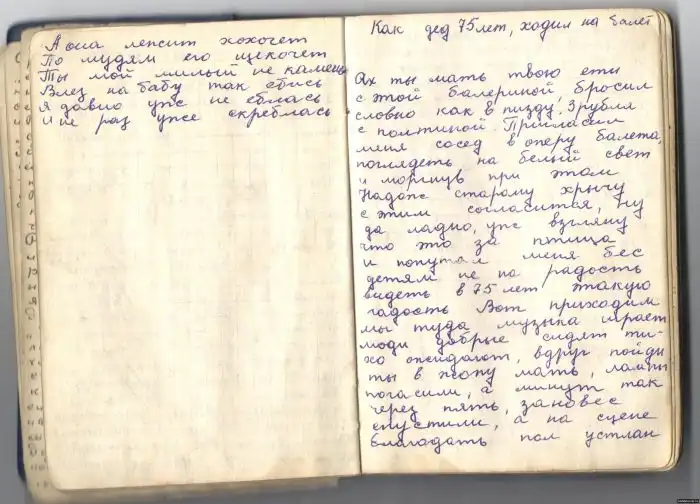 А она лепсит хохочет
По мудям его щекочет
Ты мой милый не камень
Влез на бабу так ебись
я давно упс не еблась
и не раз упсе скреблась
Как дед 75 лет, ходил на балет
Ах ты мать твою ети
с этой балериной бросил
словно как в пизду. 3 рубля
с полтиной. Пригласил
меня сосед в оперу балета,
поглядеть на белый свет
и моргнув при этом
Надопс старому хрычу
с этим согласится, ну
да ладно, упс взгляну
что это за птица
и попутал меня бес
детям не на радость
видеть в 75 лет этакую
гадость Вот приходим
мы туда музыка играет
люди добрые сидят ти-
хо опсидают, вдруг пойди
ты в жопу мать, лампы
погасили, а минут так
через пять, зановес
спустили, а на сцене
благодать пол устлан